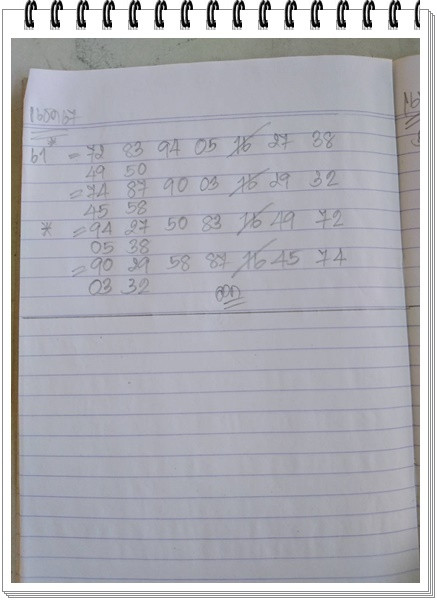 160967
61 * = 72 83 94 05 16 27 38
49 50
= 74 87 90 03 16 29 32
45 58
* = 94 27 50 83 16 49 72
05 38
= 90 29 58 87 16 45 74
03 32